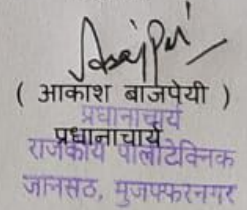 ( आकाश बाजपेयी )
प्रधानाचार्य
प्रधानाचार्य
राजकीय पालीटेक्निक
जानसठ, मुजफ्फरनगर